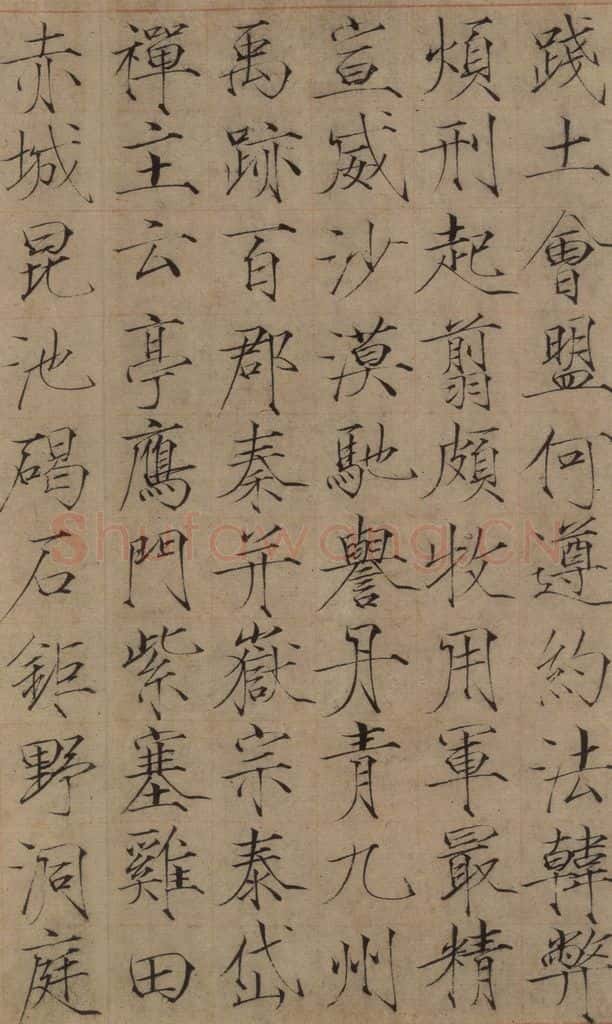 踐土會盟何遵約法韓弊
煩刑起翦頗牧用軍最精
宣威沙漠馳譽丹青九州
禹跡百郡秦并嶽宗泰岱
禪主云亭鷹門紫塞雞田
赤城昆池碣石鉅野洞庭
Shufawang.CN